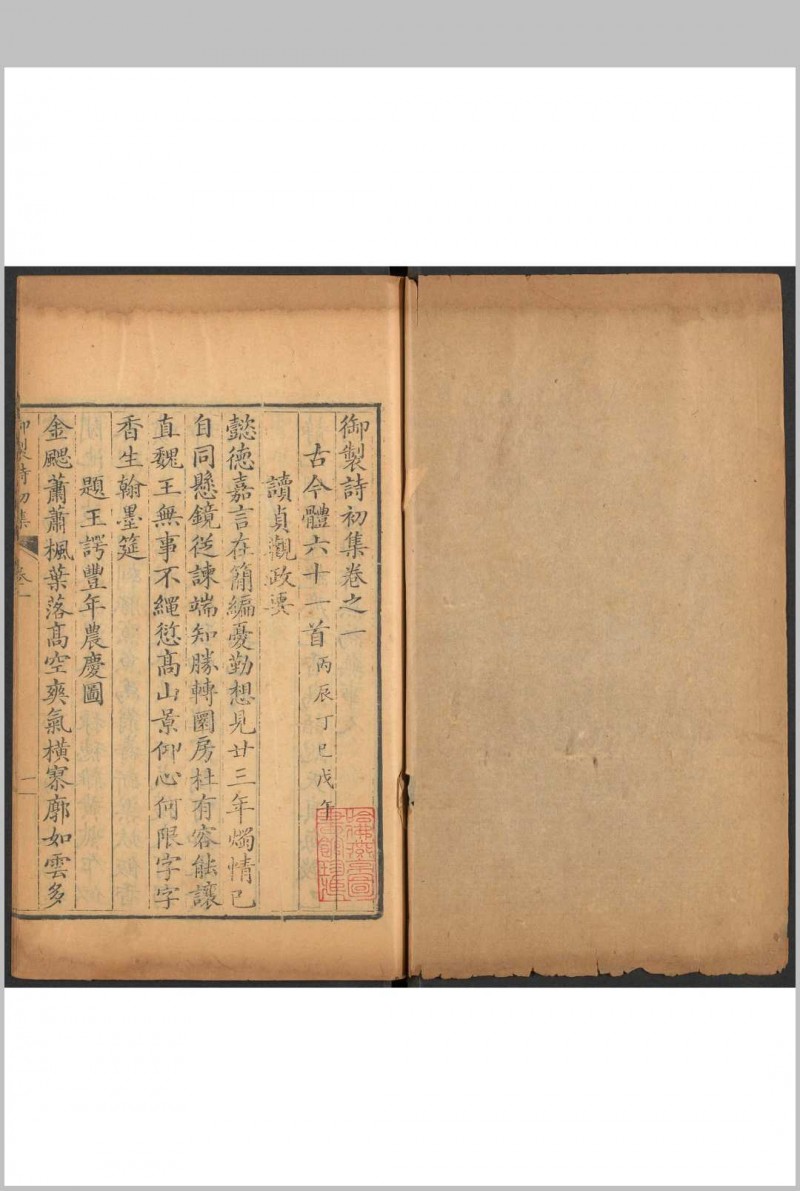 御製詩初集卷之一
古今體六十一首丙辰丁巳戊午
讀貞觀政要
懿德嘉言在簡編憂勤想見廿三年燭情已
自同懸鏡從諫端知勝轉圜房杜有容能讓
直魏王無事不繩愆髙山景仰心何限字字
香生翰墨筵
題王諤豐年農慶圖
金颸蕭蕭楓葉落髙空爽氣橫寥廓如雲多
御製詩初集
卷一
一
哈佛燕京圖書館珍藏